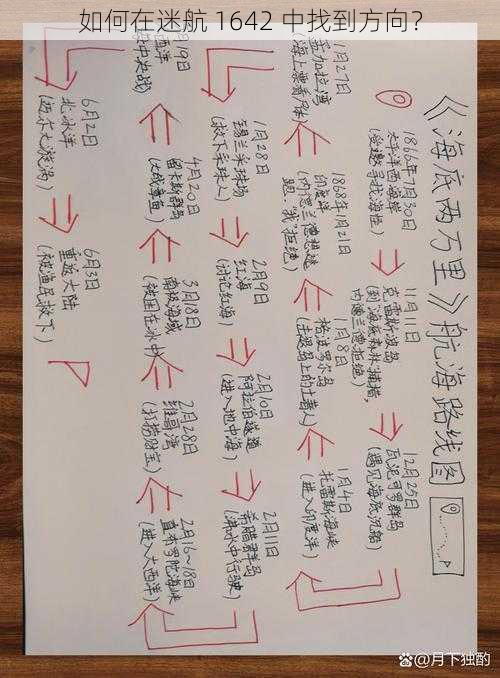 如何在迷航 1642 中找到方向？
《海底两万里》航海路线图
1866年7月30日
太平洋西海岸
(受邀寻找海怪)
11月11日
克雷斯波岛
(到海底森林捕猎,
内德兰德拒绝)
12月25日
瓦尼可罗群岛
(遇见海底沉船)
1月4日
托雷斯海峡
(进入印度洋)
1月8日
格波罗尔岛
(土著岛上的土著人)
1868年1月21日
印度洋
(内德兰德想逃
跑,"我"拒绝)
1月27日
孟加拉湾
(海上飘着尸体)
1月28日
锡兰采珠场
(救下采珠人)
2月9日
红海
(讨论红海)
2月16日
阿拉伯隧道
(进入地中海)
2月11日
希腊群岛
(沸水中行驶)
2月16~18日
直布罗陀海峡
(进入大西洋)
2月28日
维哥湾
(打捞财宝)
3月18日
南极海域
(被困在冰中)
4月20日
留卡斯群岛
(大战章鱼)
月19日
西洋
中央战)
6月2日
北冰洋
(迈尔大漩涡)
6月3日
重返大陆
(被渔民救下)
@月下独酌